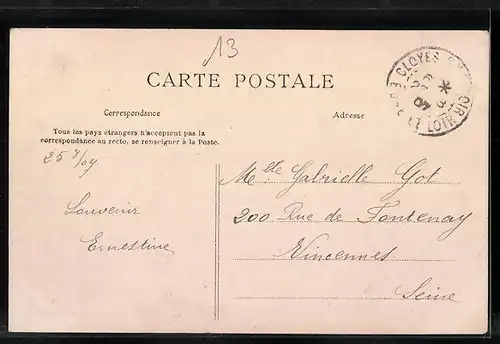 13
CARTE POSTALE
Correspondance
Adresse
Tous les pays étrangers n'acceptent pas la
correspondance au recto, se renseigner à la Poste.
CLOYES
EURE ET LOIR
25 7/07
Souvenir
Ernestine
Melle Gabrielle Got
200 Rue de Fontenay
Vincennes
Seine